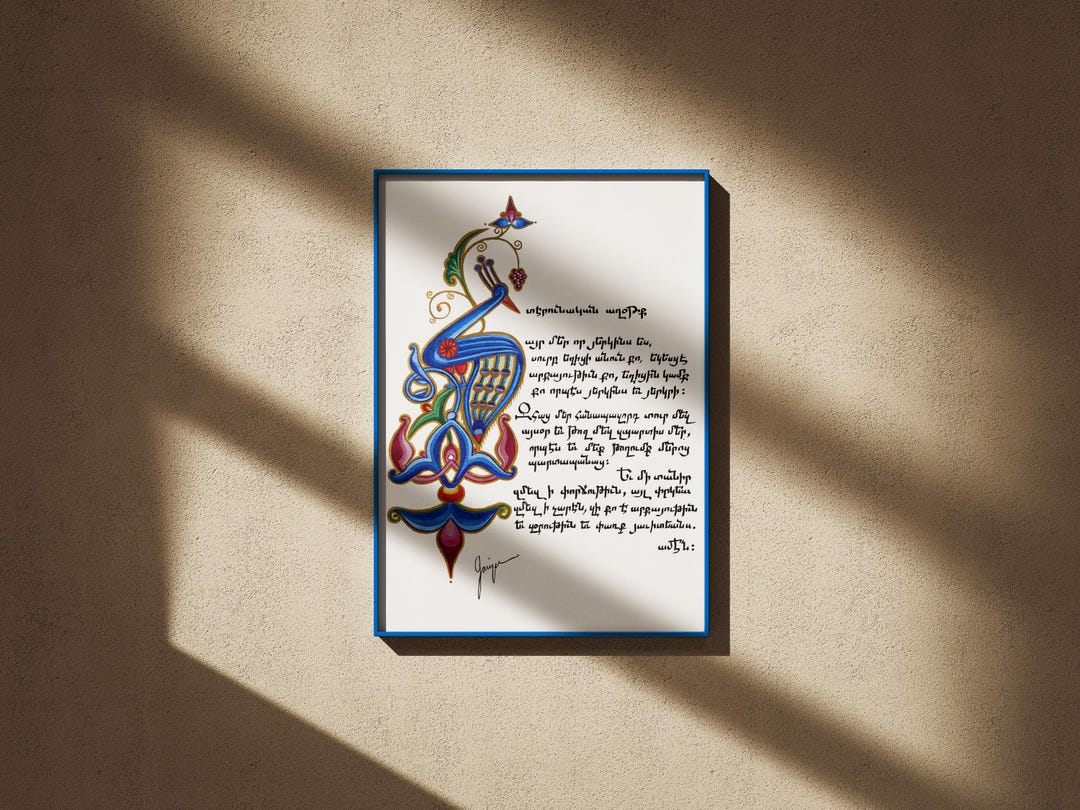 տէրունական աղօթք
այր մեր որ յերկինս ես,
սուրբ եղիցի անուն քո, եկեսցէ
արքայութիւն քո, եղիցին կամք
քո որպէս յերկինս եւ յերկրի:
Զհաց մեր հանապազորդ տուր մեզ
այսօր եւ թող մեզ զպարտիս մեր,
որպէս եւ մեք թողումք մերոց
պարտապանաց:
Եւ մի տանիր
զմեզ ի փորձութիւն, այլ փրկեա
զմեզ ի չարէն, զի քո է արքայութիւն
եւ զօրութիւն եւ փառք յաւիտեանս.
ամէն: